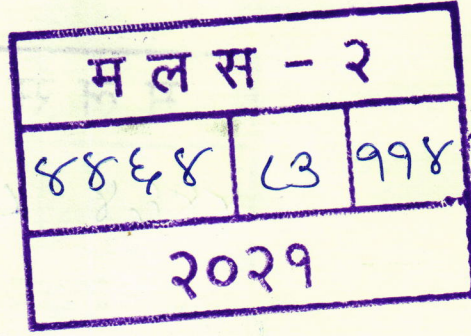 म ल स - २
४४६४ ८३ ११४
२०२१